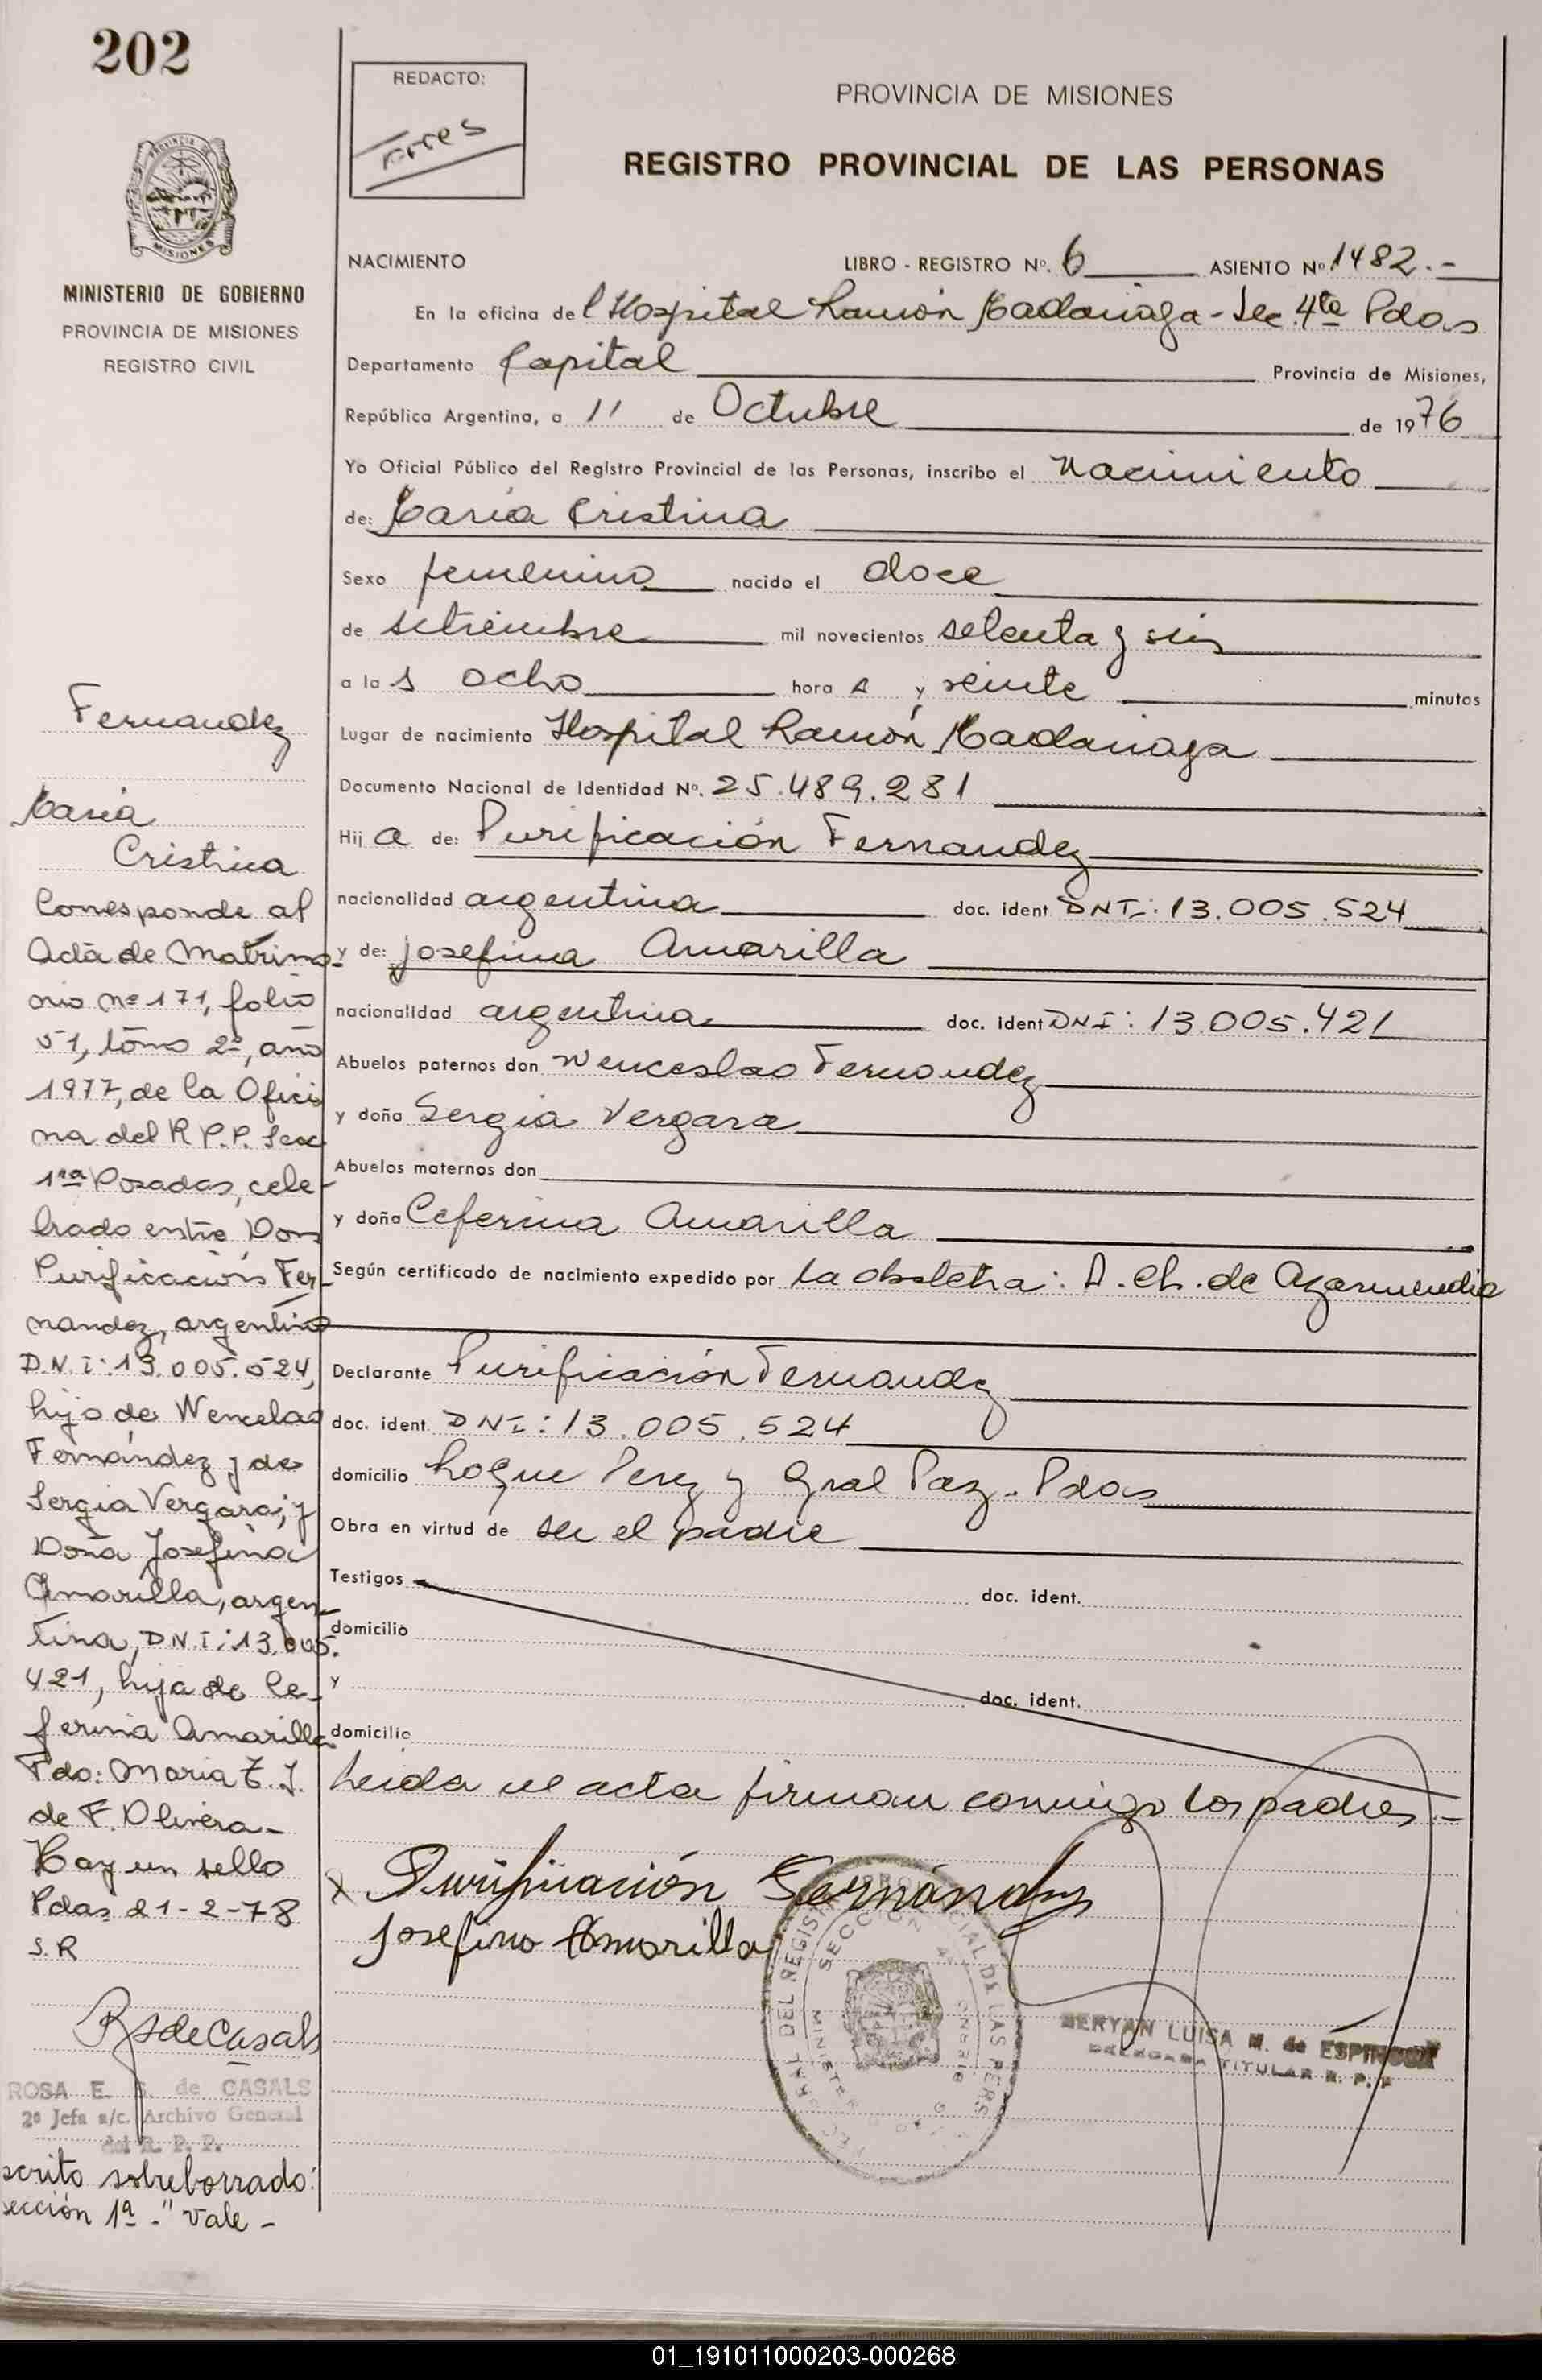 202
PROVINCIA DE
MISIONES
MINISTERIO DE GOBIERNO
PROVINCIA DE MISIONES
REGISTRO CIVIL
Fernandez
Maria
Cristina
Corresponde al
Acta de Matrimo-
nio nº 171, folio
51, tomo 2º, año
1977, de la Ofici
na del R.P.P. Secc
1ra Posadas, cele-
brado entre Don
Purificación Fer-
nandez, argentino
D.N.I: 13.005.524,
hijo de Wencelao
Fernández y de
Sergia Vergara; y
Doña Josefina
Amarilla, argen-
tina, D.N.I: 13.005.
421, hija de Ce-
ferina Amarilla
Fdo: Maria E. J.
de F. Olivera-
Hay un sello
Pdas 21-2-78
S.R
RSdeCasals
ROSA E. S. de CASALS
2ª Jefa a/c. Archivo General
del R. P. P.
scrito sobreborrado:
sección 1ª-" Vale -
REDACTO:
Torres
PROVINCIA DE MISIONES
REGISTRO PROVINCIAL DE LAS PERSONAS
NACIMIENTO LIBRO - REGISTRO Nº. 6 ASIENTO Nº 1482.-
En la oficina del Hospital Ramón Madariaga - Sec. 4ta Pdas
Departamento Capital Provincia de Misiones,
República Argentina, a 11 de Octubre de 1976
Yo Oficial Público del Registro Provincial de las Personas, inscribo el nacimiento
de: Maria Cristina
Sexo femenino nacido el doce
de setiembre mil novecientos setenta y seis
a las ocho horas y veinte minutos
Lugar de nacimiento Hospital Ramón Madariaga
Documento Nacional de Identidad Nº. 25.489.281
Hija de: Purificación Fernandez
nacionalidad argentina doc. ident. DNI: 13.005.524
y de: Josefina Amarilla
nacionalidad argentina doc. ident DNI: 13.005.421
Abuelos paternos don Wenceslao Fernandez
y doña Sergia Vergara
Abuelos maternos don
y doña Ceferina Amarilla
Según certificado de nacimiento expedido por la obstetra: A. Ch. de Azarmendia
Declarante Purificación Fernandez
doc. ident. DNI: 13.005.524
domicilio Roque Perez y Gral Paz. Pdas
Obra en virtud de ser el padre
Testigos doc. ident.
domicilio
y doc. ident.
domicilio
Leida el acta firman conmigo los padres.-
x Purificación Fernández
Josefina Amarilla
SECCION 4
MERYAN LUISA M. de ESPINOSA
DELEGADA TITULAR R. P. P.
01_191011000203-000268